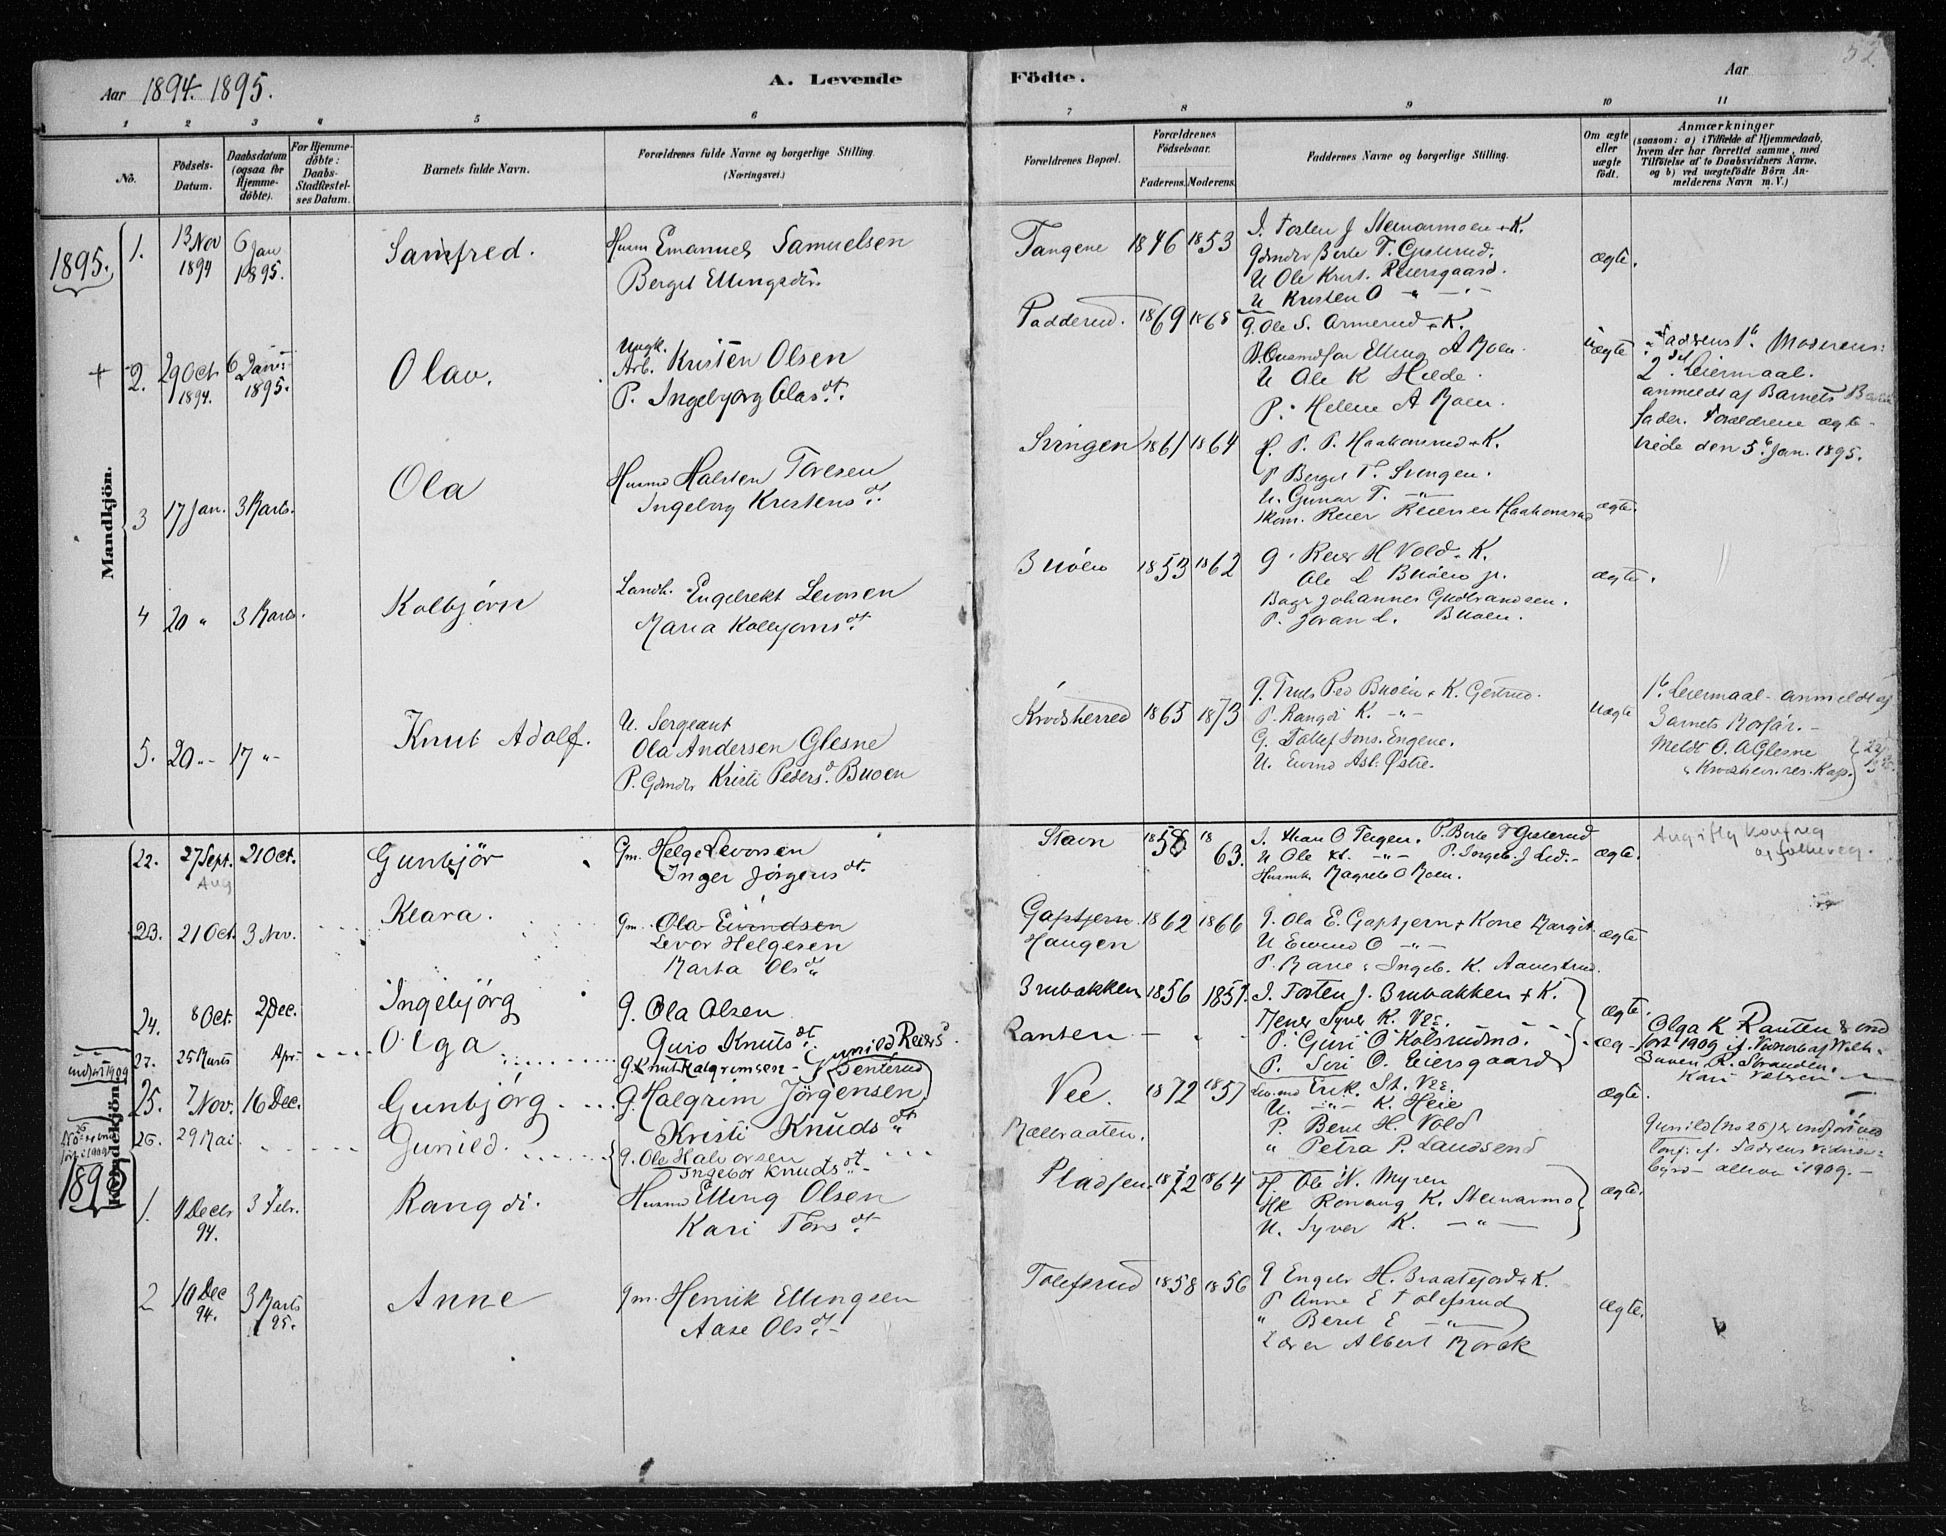 Aar 1894. 1895.
A. Levende Födte.
Aar
1 2 3 4 5 6 7 8 9 10 11
No.
Födsels-Datum.
Daabsdatum (ogsaa for Hjemme-döbte).
For Hjemme-döbte: Daabs-Stadfæstel-ses Datum.
Barnets fulde Navn.
Forældrenes fulde Navne og borgerlige Stilling.
(Næringsvei.)
Forældrenes Bopæl.
Forældrenes Födselsaar.
Faderens. Moderens.
Faddernes Navne og borgerlige Stilling.
Om ægte eller uægte födt.
Anmærkninger
(saasom: a) i Tilfælde af Hjemmedaab,
hvem der har forrettet samme, med
Tilföielse af to Daabsvidners Navne,
og b) ved uægtefödte Börn An-
melderens Navn m. V.)
Mandkjön.
1895.
1. 13 Nov 1894 6 Jan 1895. Samfred. Husm Emanuel Samuelsen
Berget Ellingsdtr.
Tangene 1846 1853 I. Torsten J Steinarmoen + K.
U Ole Krist. Reiersgaard.
U Kristen O - " -
ægte.
+ 2. 29 Oct 1894. 6 Jan 1895. Olav. Ungk. Arb. Kristen Olsen
P. Ingebjorg Olas dt.
Padderud. 1869 1868 G. Ole S. Armerud + K.
Elling A Moen.
U Ole K Hilde.
P. Helene A Moen.
uægte
Faderens 1ste Moderens
2det Leiermaal.
anmeldt af Barnets
fader. Forældrene ægte-
viede den 5te Jan. 1895.
3 17 Jan. 3 Marts. Ola Husmd Halsten Toresen
Ingeborg Kristens dt.
Svingen 1861 1864 P. P. Haakonsrud + K.
P Berget T. Svingen.
U. Gunar T. - " -
Skom. Reier Reiersen Haakonsrud
ægte.
4 20 " 3 Marts. Kolbjørn Landh. Engebrekt Levorsen
Maria Kolbjørns dt.
Buøen 1853 1862 G. Reier H Vold + K.
Ole L Buøen jr.
Bager Johannes Gudbrandsen.
P. Joran L. Buøen.
ægte.
5. 20 " 17 " Knut Adolf. U. Sergeant
Ola Andersen Glesne
P. Gdmdtr Kristi Peders d. Buøen
Krødsherred 1865 1873 G. Truls Ped Buøen + K. Gertrud.
P. Rangdi K. - " -
G. Tollef Jons. Engene.
U. Eivind Ast. Østre.
Uægte
1ste Leiermaal anmeldt af
Barnets Morfar. -
Meldt O. A Glesne
22. 27 Sept. Aug 21 Oct. Gunbjör Gm. Helge Levorsen
Inger Jörgens dt.
Stavn 1858 1863. I. Hans O Teigen. P. Berte T Gisterud
U Ole H. - " - P. Ingeb. J Lid.
Husmk. Magrete O Moen.
ægte.
23. 21 Oct. 3 Nov. Klara. Gm. Ola Eivindsen
Levor Helgesen
Marta Ols d.
Gaptjern Haugen 1862 1866 G. Ola E. Gaptjern + Kone Margit
U Eivind O - " -
P. Marie & Ingeb. K. Aavestrud.
ægte
24. 8 Oct. 2 Dec. Ingebjörg G. Ola Olsen
Guro Knuts dt.
Brubakken 1856 1851. I. Torsten J. Brubakken + K.
Syver K. Vee.
P. Guri O Kolsrudmo.
P. Siri O. Eiersgaard
ægte.
27. 25 Marts Apr. Olga G. Knut Halgrimsen - Gunild Reiers d.
Ranten - " æg-
Olga K Ranten er ind
ført 1909
indført 1909
25. 7 Nov. 16 Dec. Gunbjörg G. Halgrim Jörgensen
Kristi Knuds dt.
Vee. 1872 1857 Erik St. Vee.
U. - " - K. Heie
P. Berit H. Vold
" Petra P. Landsend
ægte.
26. 29 Mai Gunild. G. Ole Halvorsen
Ingebor Knuds dt.
Mellraaten.
Gunild (no 26) er indført ved
1909. -
Kvindekjön.
1895
1. 11 Decbr 94. 3 Febr. Rangdi. Husmd Elling Olsen
Kari Tors dt.
Pladsen 1872 1864 H Ole N. Myren
HK Ronaug K. Steinarmo
U. Syver K. - " -
ægte.
2 10 Dec 94. 3 Marts 95. Anne Gm. Henrik Ellingsen
Aase Ols dt.
Tolefsrud 1858 1856 G Engebr H. Braatefjord + K.
P Anne E Tolefsrud
" Berit E - " -
Lærer Albert Morck
ægte.